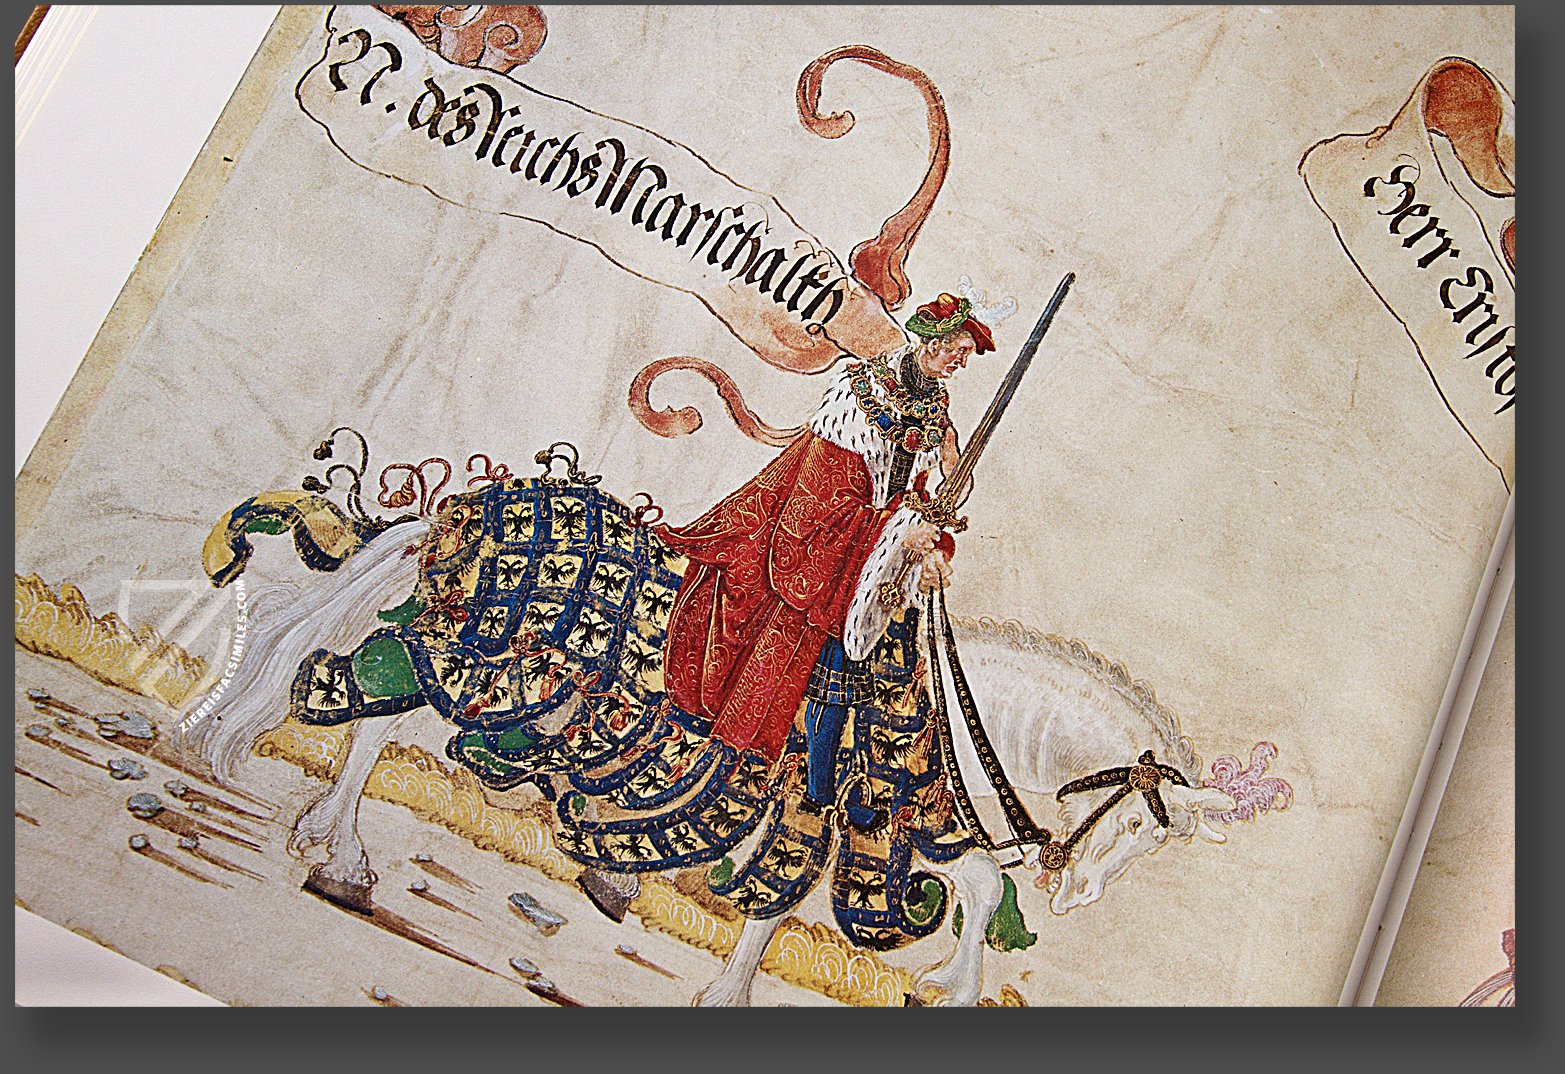 N. des Reichs Marschalkh
Herr Ernst
ZIEREISFACSIMILES.COM